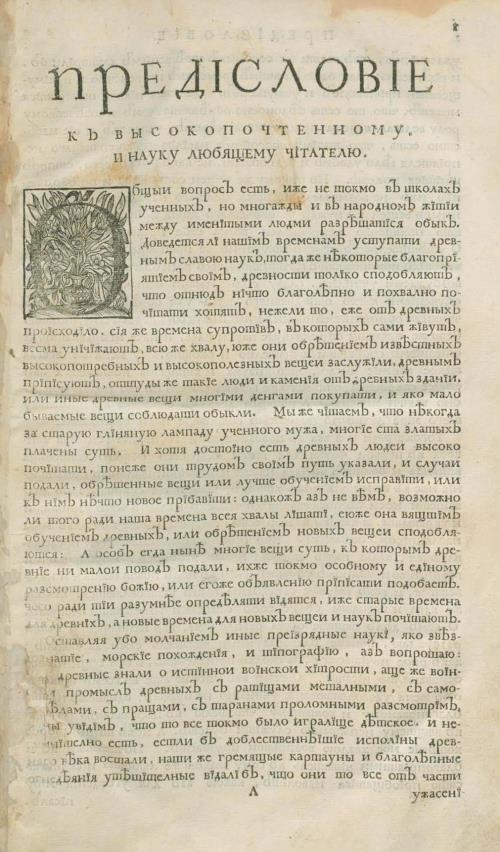 ПРЕДІСЛОВІЕ
КЪ ВЫСОКОПОЧТЕННОМУ.
И НАУКУ ЛЮБЯЩЕМУ ЧІТАТЕЛЮ.
Общыи вопросъ есть, иже не токмо въ школахъ
ученныхъ, но многажды и въ народномъ жітіи
между имениѣыми людми разрѣшатіся обыкъ.
Доведется лі нашімъ временамъ уступати древ-
нымъ славою наукъ, тогда же нѣкоторые благопрі-
ятіемъ своімъ, древности толіко сподобляютъ,
что отнюдъ нічто благолѣпно и похвално по-
чітати хотятъ, нежели то, еже отъ древныхъ
проісходіло. сія же времена супротівъ, въ которыхъ сами жівутъ,
весма унічіжаютъ, всю же хвалу, юже они обрѣтеніемъ извѣстныхъ
высокопотребныхъ и высокополезныхъ вещеи заслужіли, древнымъ
пріпісуютъ, оттуды же такіе люди и каменія отъ древныхъ зданіи.
или иные древные вещи многіми денгами покупати, и яко мало
бываемые вещи соблюдати обыкли. Мы же чітаемъ, что нѣкогда
за старую гліняную лампаду ученного мужа, многіе ста златыхъ
плачены суть. И хотя достоіно есть древныхъ людеи высоко
почітати, понеже они трудомъ своімъ путь указали, и случаи
подали, обрѣтенные вещи или лучше обученіемъ исправіти, или
къ німъ нѣчто новое прібавіти: однакожъ азъ не вѣмъ, возможно
ли того ради наша времена всея хвалы лішаті, еюже она вящшімъ
обученіемъ древныхъ, или обрѣтеніемъ новыхъ вещеи сподобля-
ются: А особъ егда нынѣ многіе вещи суть, къ которымъ дре-
вніе ни малои поводъ подали, ихже токмо особному и едіному
разсмотренію божію, или егоже объявленію пріпісати подобаетъ.
чего ради тіи разумнѣе опредѣляти відятся, иже старые времена
для древніхъ, а новые времена для новыхъ вещеи и наукъ почітаютъ.
Оставляя убо молчаніемъ иные преізрядные наукі, яко звѣз-
знатіе, морскіе похожденія, и тіпографію, азъ вопрошаю:
древные знали о істінной воінскои хітрости, аще же воін-
промыслъ древныхъ съ ратіщами металными, съ само-
лами, съ пращами, съ таранами проломными разсмотрімъ,
увідімъ, что то все токмо было играліще дѣтское. и не-
есть, естли бъ доблественнѣішіе исполіны древ-
вѣка востали, наши же гремящые картауны и благолѣпные
утѣшітелные відалі бъ, что они то все отъ части
А
ужасені-